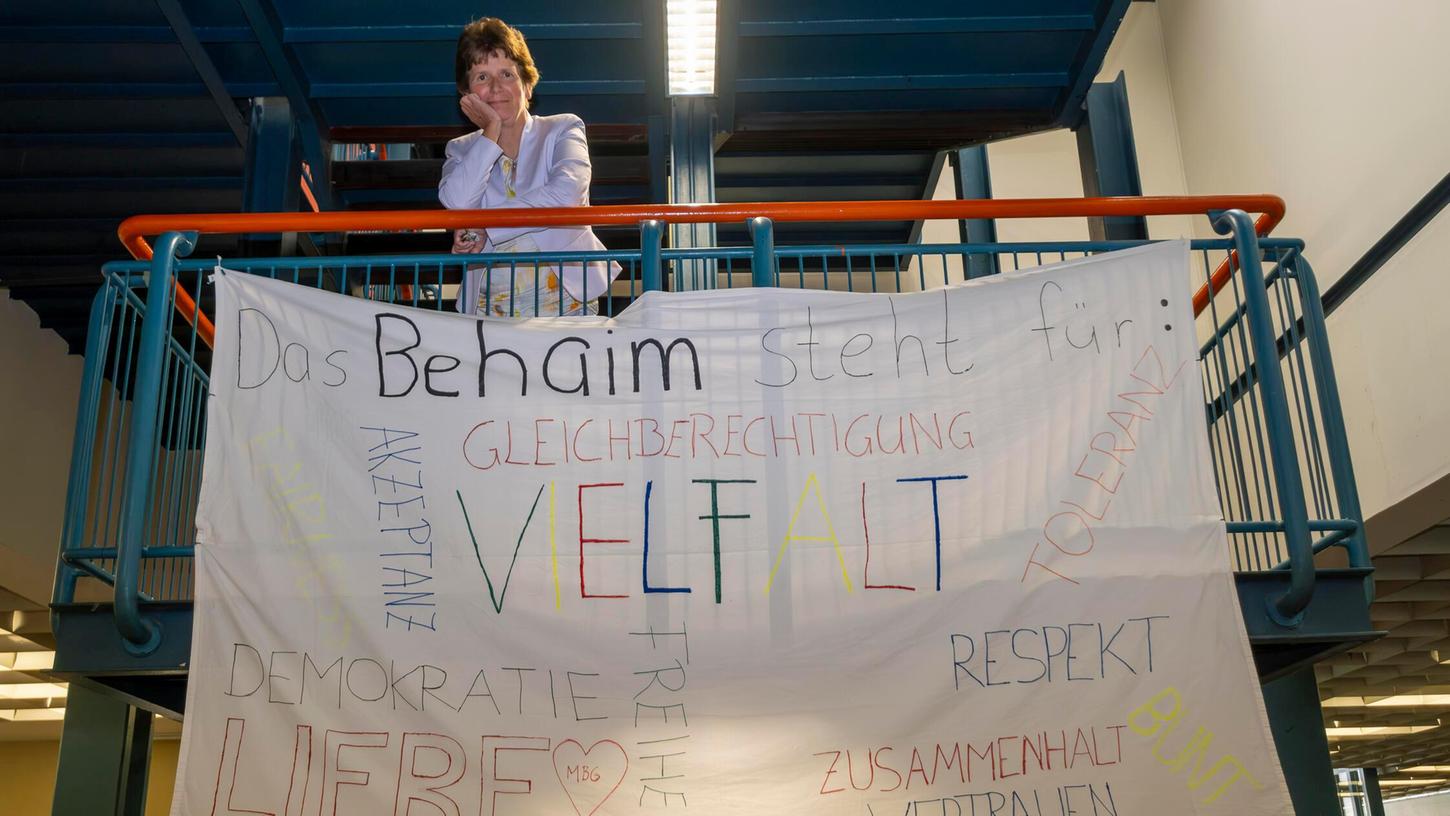 Das Behaim steht für:
GLEICHBERECHTIGUNG
TOLERANZ
AKZEPTANZ
VIELFALT
RESPEKT
DEMOKRATIE
FREIHE
LIEBE
MBG
ZUSAMMENHALT
BUNT
VERTRAUEN